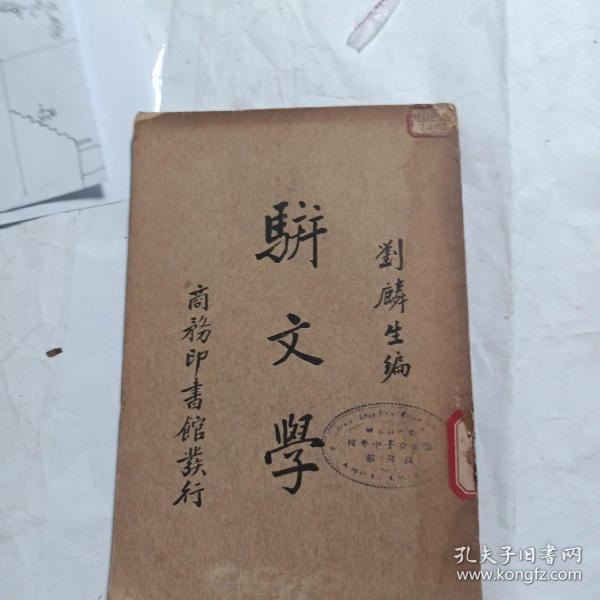 劉麟生編
駢文學
商務印書館發行
孔夫子旧书网
www.kongfz.com